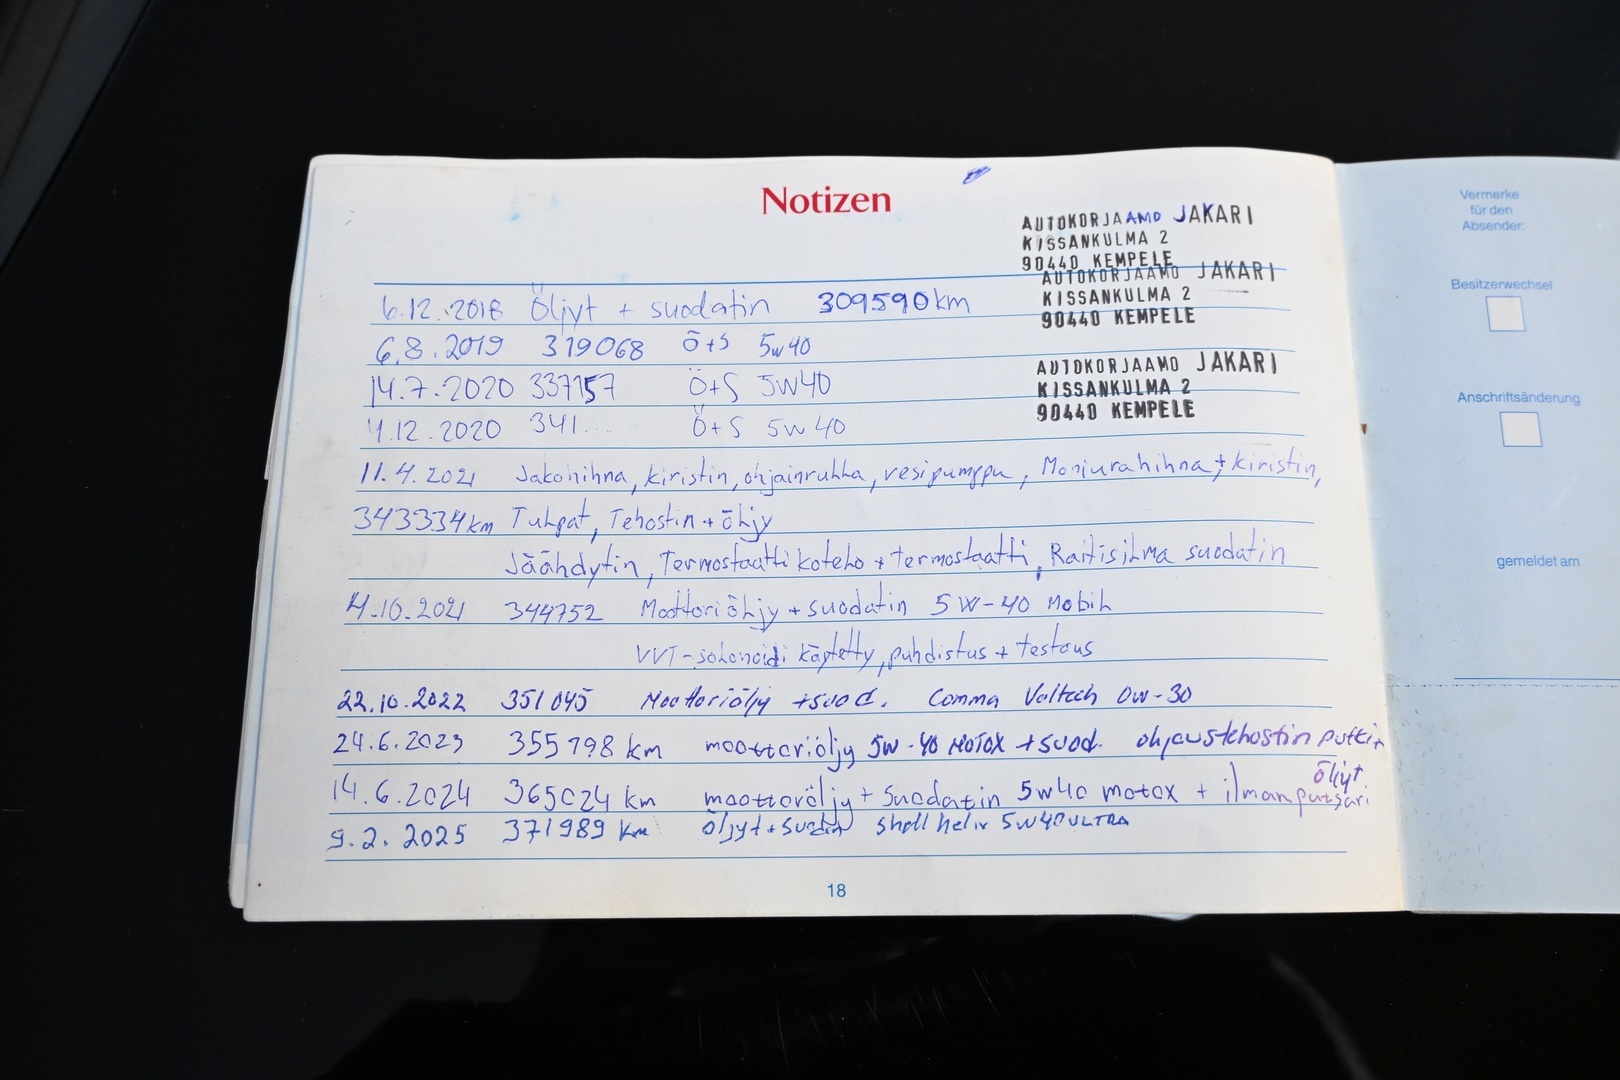 Notizen
AUTOKORJAAMO JAKARI
KISSANKULMA 2
90440 KEMPELE
AUTOKORJAAMO JAKARI
KISSANKULMA 2
90440 KEMPELE
6.12.2018 Öljyt + suodatin 309590 km
6.8.2019 319068 Ö+S 5w40
AUTOKORJAAMO JAKARI
KISSANKULMA 2
90440 KEMPELE
14.7.2020 337157 Ö+S 5W40
4.12.2020 341... Ö+S 5w40
11.4.2021 Jakohihna, kiristin, ohjainrulla, vesipumppu, Moniurahihna + kiristin,
343334 km Tulpat, Tehostin + öljy
Jäähdytin, Termostaatti kotelo + termostaatti, Raitisilma suodatin
4.10.2021 344752 Moottoriöljy + suodatin 5W-40 Mobil
VVT-solenoidi käytetty, puhdistus + testaus
22.10.2022 351045 Moottoriöljy + suod. Comma Voltech 0w-30
24.6.2023 355798 km moottoriöljy 5W-40 MOTOX + suod. ohjaustehostin
öljyt
14.6.2024 365024 km moottoröljy + suodatin 5w40 motox + ilmanputsari
9.2.2025 371989 km öljyt + shell helix 5W40 ULTRA
18
Vermerke
für den
Absender:
Besitzerwechsel
Anschriftsänderung
gemeldet am